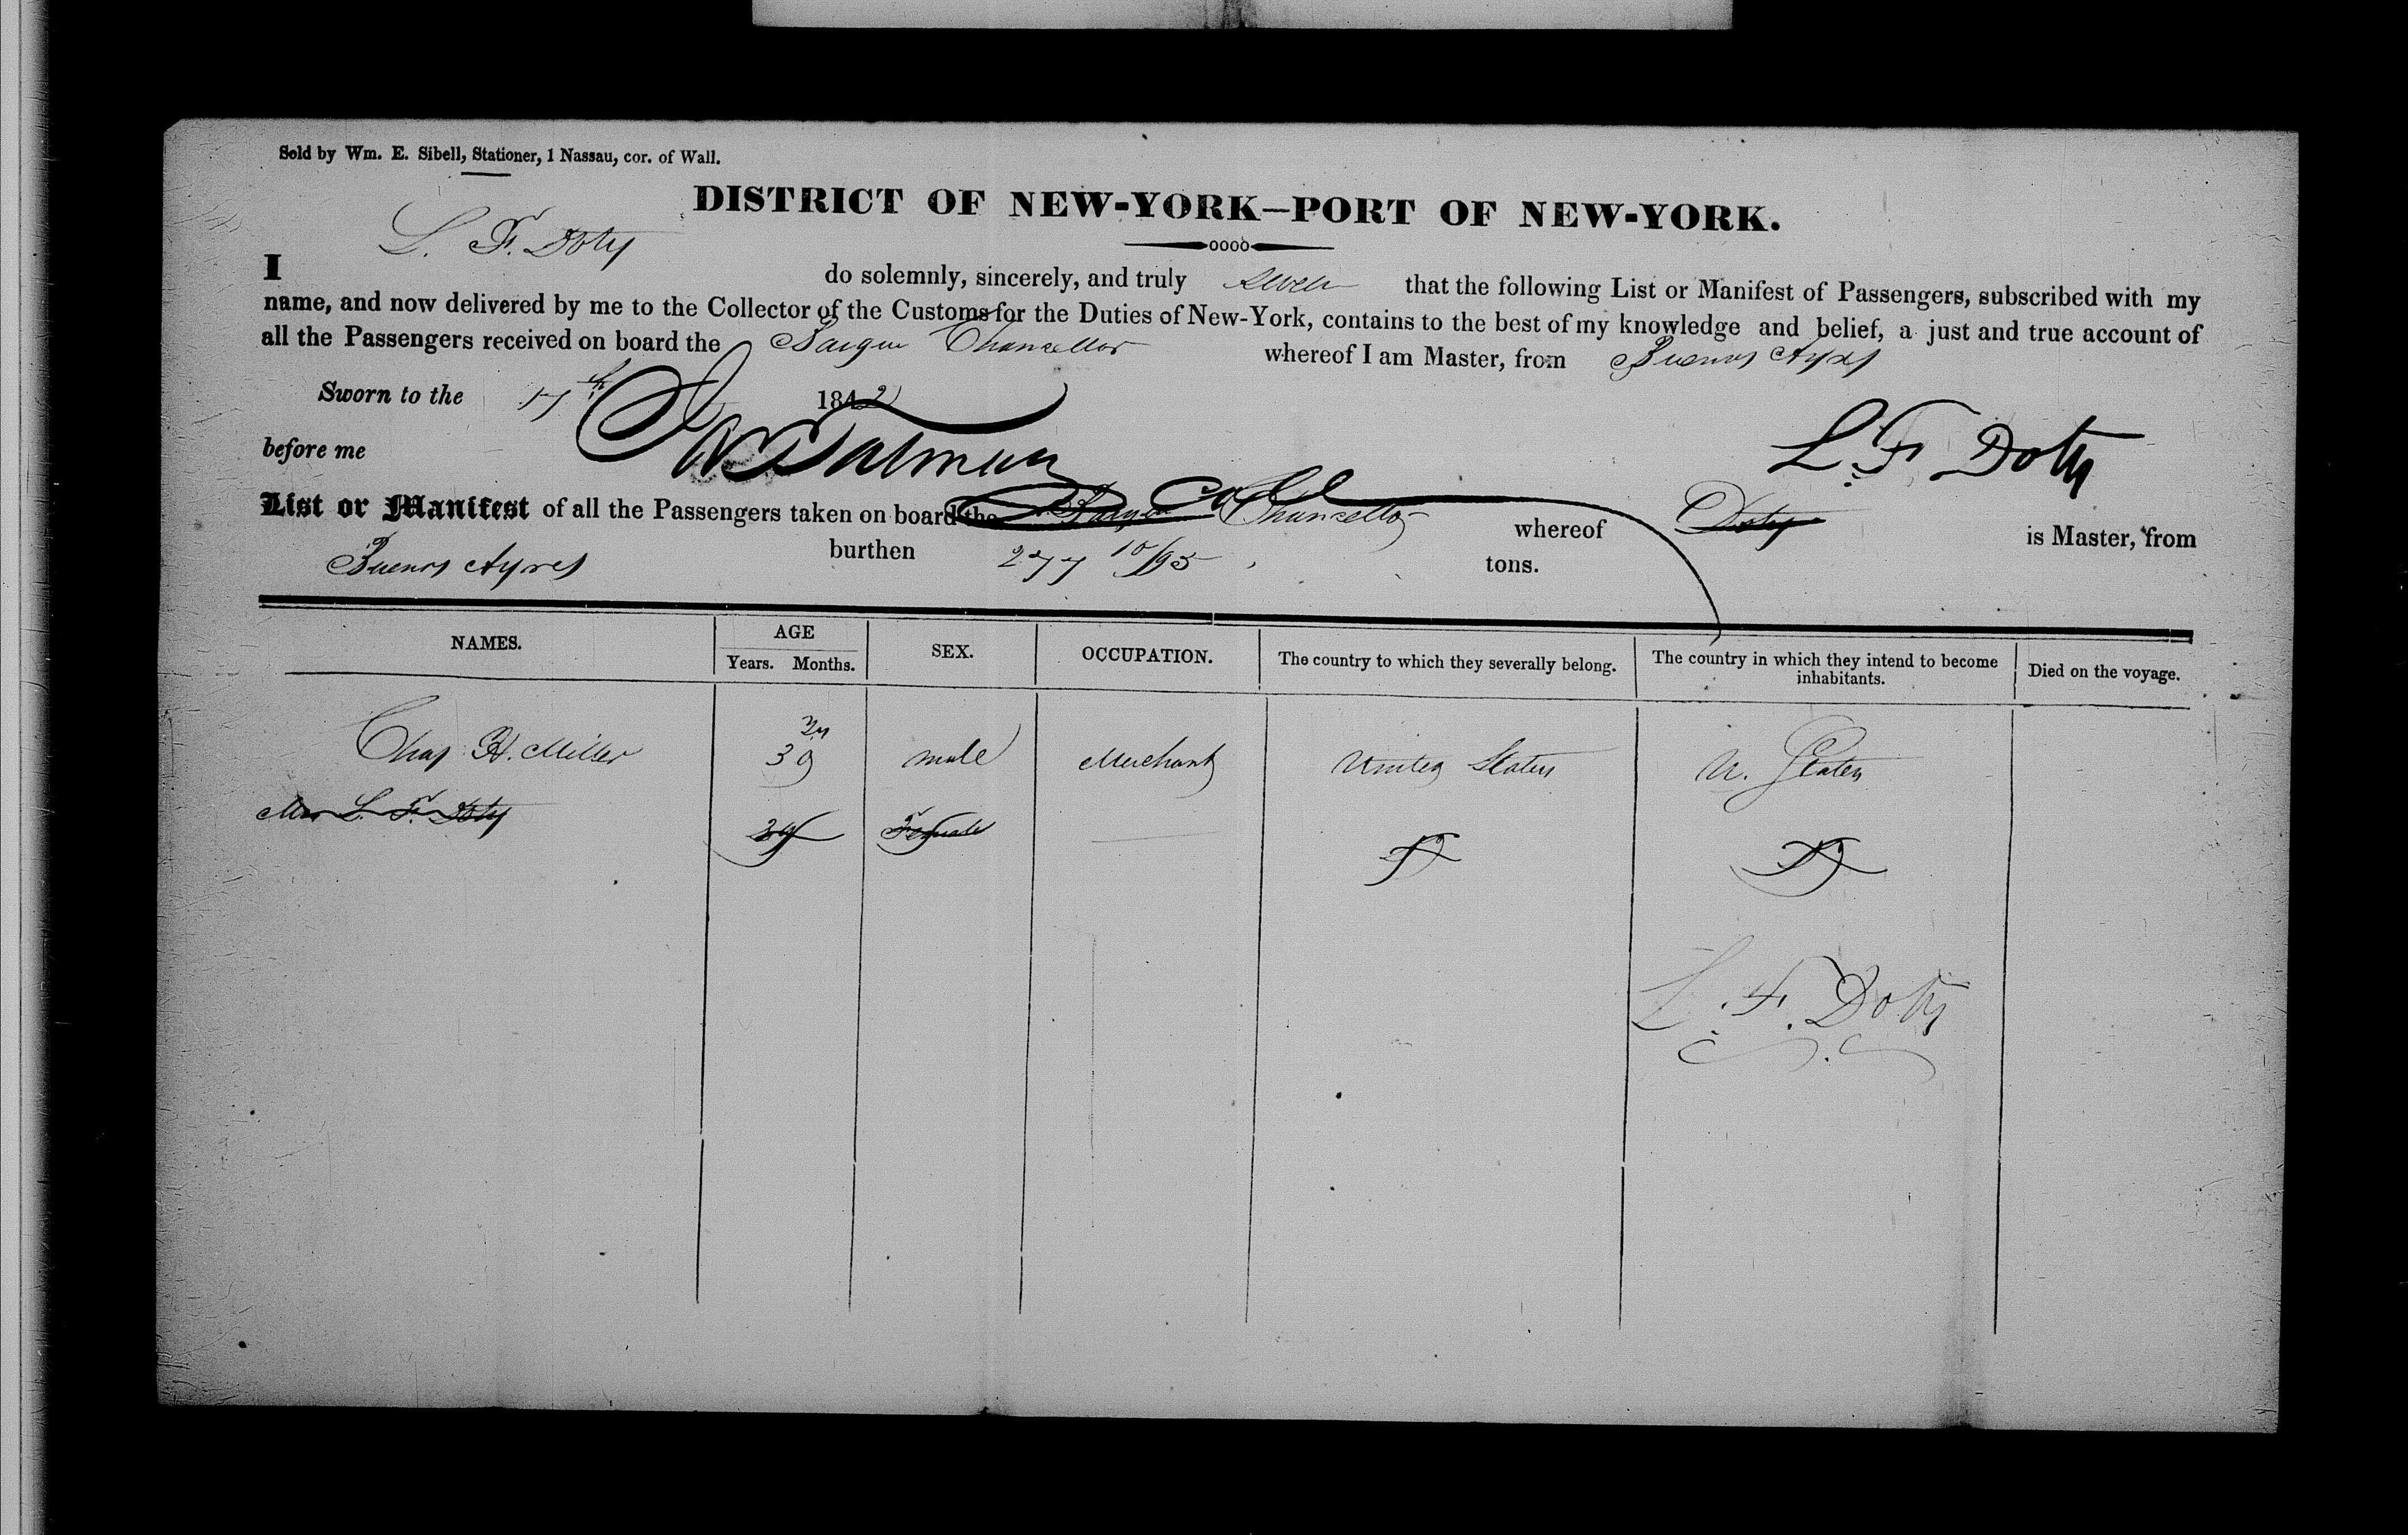 Sold by Wm. E. Sibell, Stationer, 1 Nassau, cor. of Wall.
DISTRICT OF NEW-YORK—PORT OF NEW-YORK.
I L. F. Doty do solemnly, sincerely, and truly swear that the following List or Manifest of Passengers, subscribed with my
name, and now delivered by me to the Collector of the Customs for the Duties of New-York, contains to the best of my knowledge and belief, a just and true account of
all the Passengers received on board the Barque Chancellor whereof I am Master, from Buenos Ayres
Sworn to the 17th 1842
before me L. F. Doty
List or Manifest of all the Passengers taken on board the Barque Chancellor whereof Doty is Master, from
Buenos Ayres burthen 277 10/95 tons.
NAMES. AGE Years. Months. SEX. OCCUPATION. The country to which they severally belong. The country in which they intend to become inhabitants. Died on the voyage.
Chas H. Miller 39 male Merchant United States U. States
Mrs L. F. Doty 29 Female
L. F. Doty